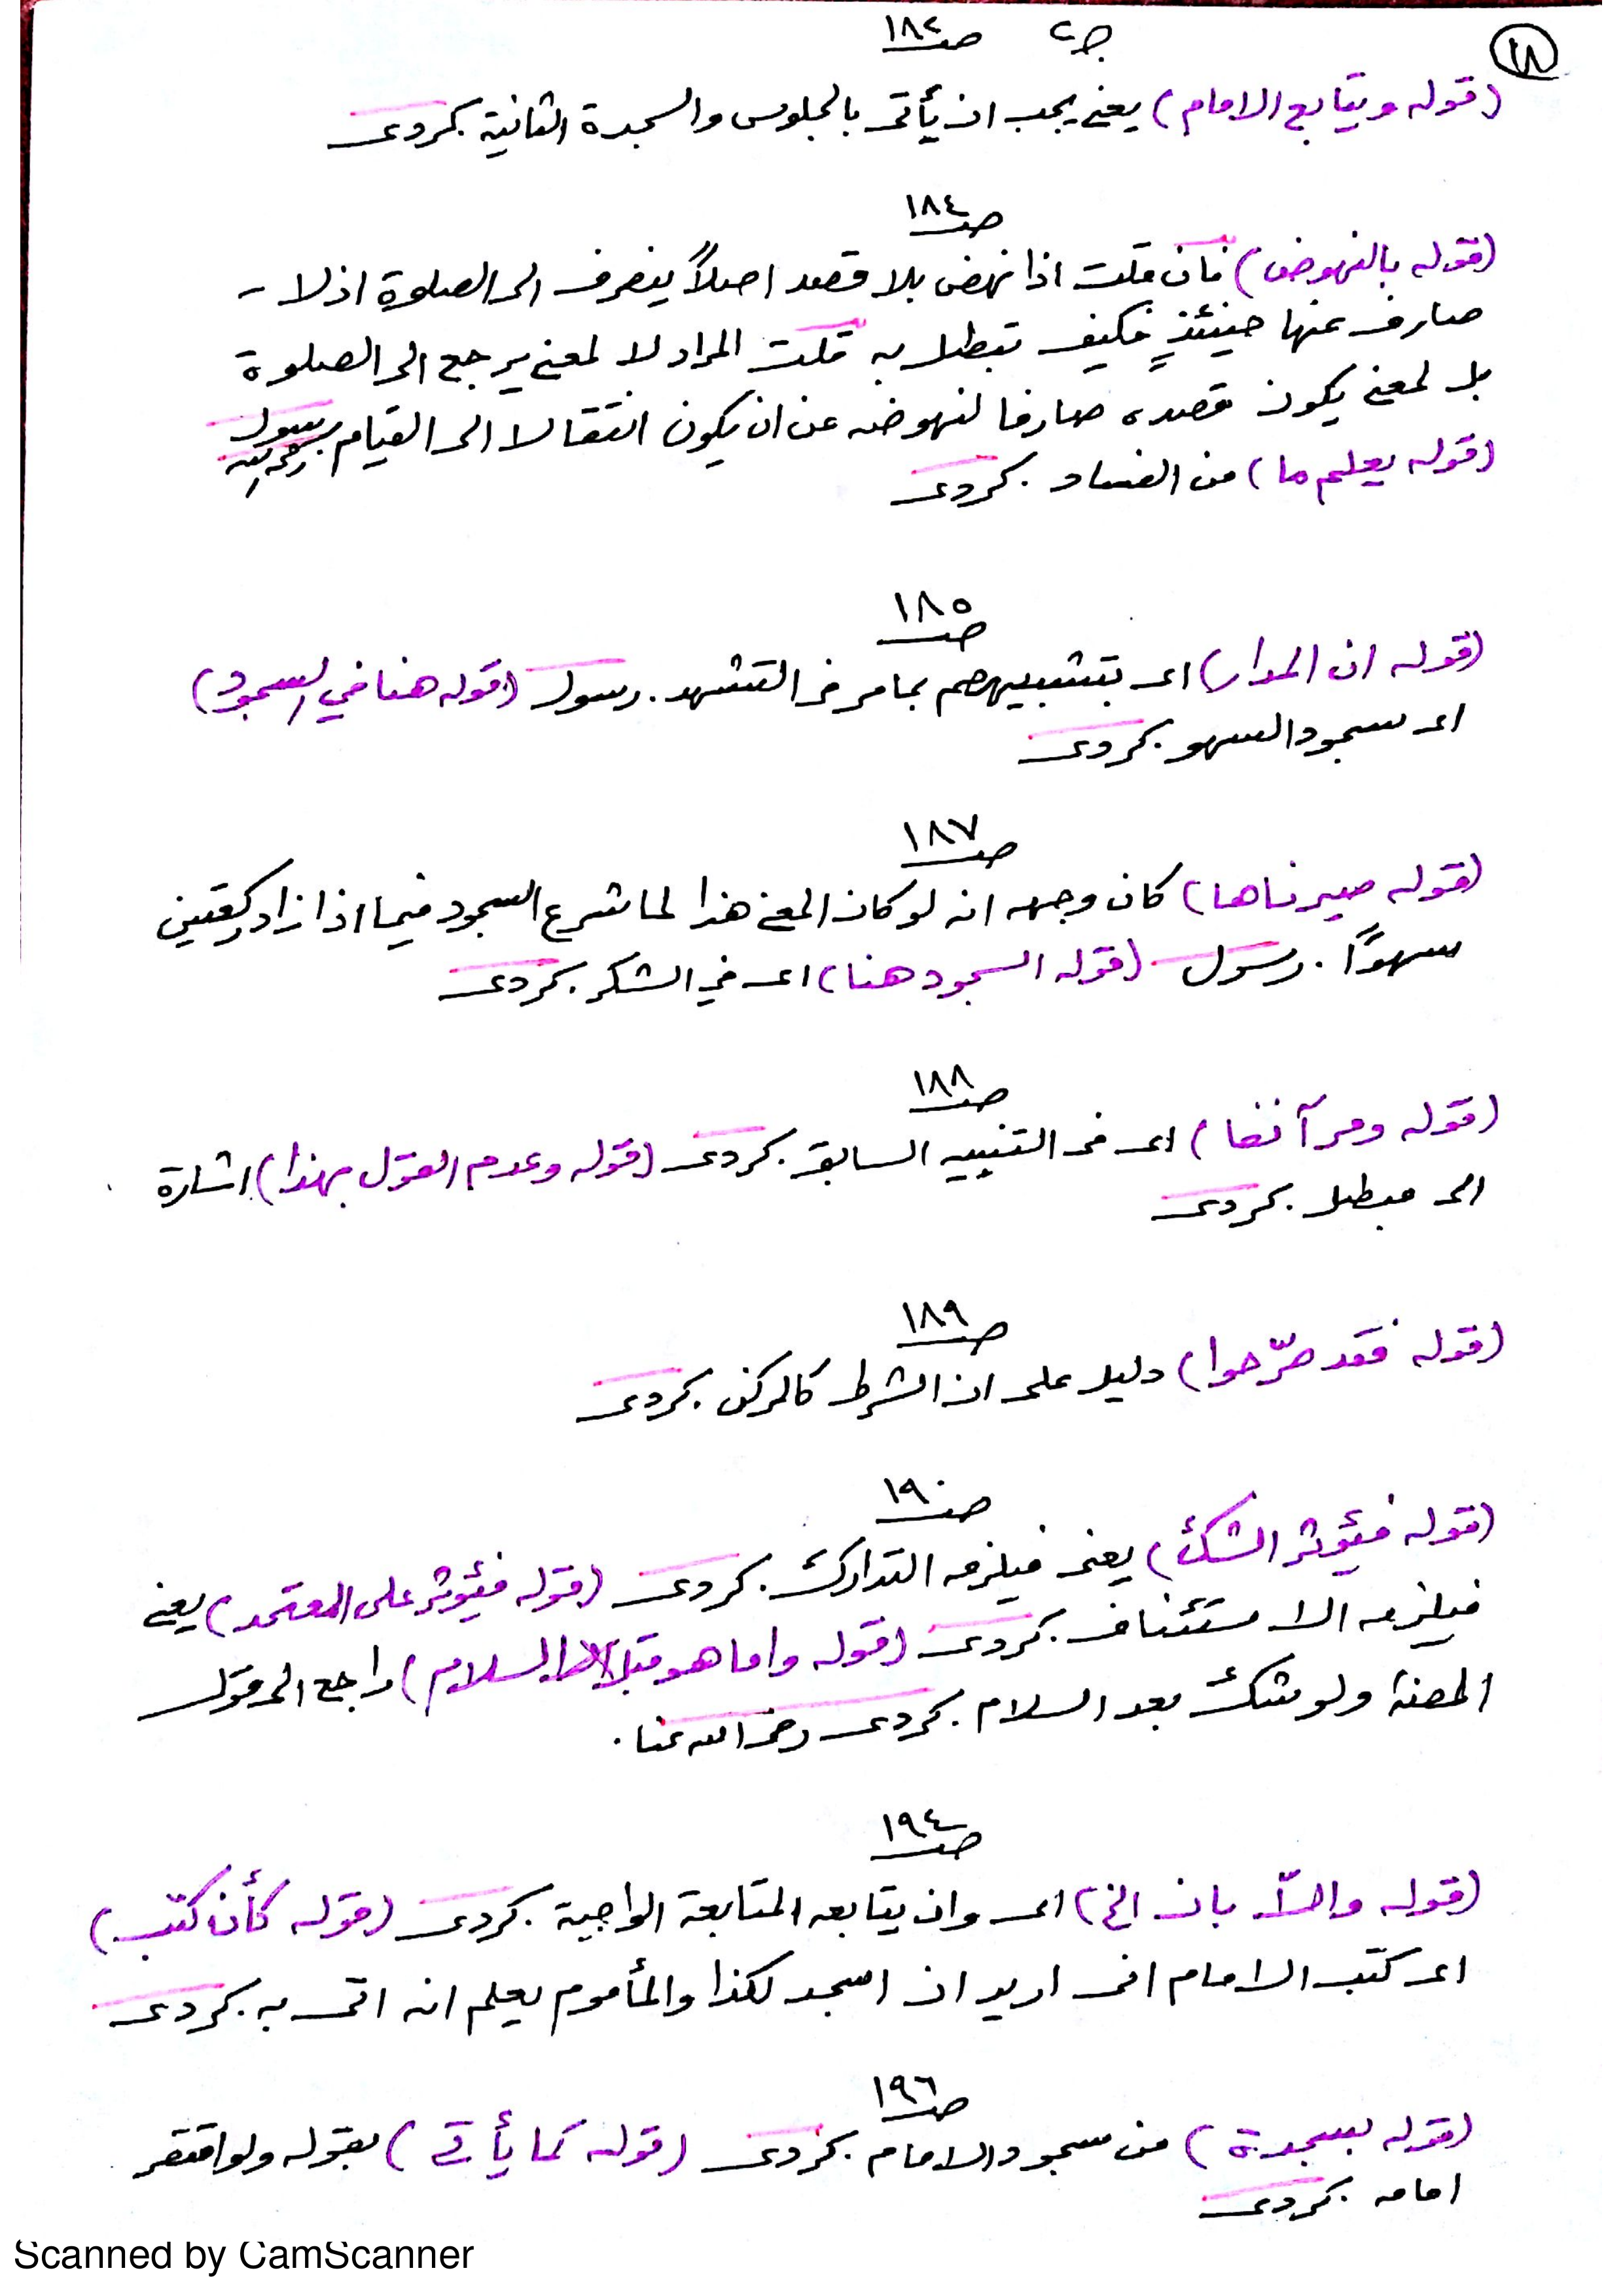 ١٨
ج٢ صـ ١٨٢
(قوله ويتابع الامام) يعنى يجب ان يأتى بالجلوس والسجدة الثانية. كردى
صـ ١٨٤
(قوله بالنهوض) فان قلت اذا نهض بلا قصد اصلاً ينصرف الى الصلوة اذ لا -
صارف عنها حينئذٍ فكيف تبطل به قلت المراد لا لمعنى يرجع الى الصلوة
بل لمعنى يكون قصده صارفا لنهوضه عن ان يكون انتقالا الى القيام رسول
(قوله يعلم ما) من الفساد. كردى
صـ ١٨٥
(قوله ان المدار) اى بتشبيههم بما مر فى التشهد. رسول (قوله هنا في السجود)
اى سجود السهو. كردى
صـ ١٨٧
(قوله صيرناها) كان وجهه انه لو كان المعنى هذا لما شرع السجود فيما اذا زاد ركعتين
سهوًا. رسول (قوله السجود هنا) اى في الشكر. كردى
صـ ١٨٨
(قوله ومر آنفا) اى فى التنبيه السابق. كردى (قوله وعدم القول بهذا) اشارة
الى مبطل. كردى
صـ ١٨٩
(قوله فقد صرّحوا) دليل على ان الشرط كالركن. كردى
صـ ١٩٠
(قوله فيؤثر الشك) يعنى فيلزمه التدارك. كردى (قوله فيؤثر على المعتمد) يعنى
فيلزمه الاستئناف. كردى (قوله واما هو قبل السلام) راجع الى قول
المصنف ولو شك بعد السلام. كردى رضى الله عنا.
صـ ١٩٤
(قوله والّا بان الخ) اى وان يتابعه المتابعة الواجبة. كردى (قوله كأن كتب)
اى كتب الامام انى اريد ان اسجد لكذا والمأموم يعلم انه اتى به. كردى
صـ ١٩٦
(قوله بسجدة) من سجود الامام. كردى (قوله كما يأتي) بقوله ولو اقتصر
امامه. كردى
Scanned by CamScanner